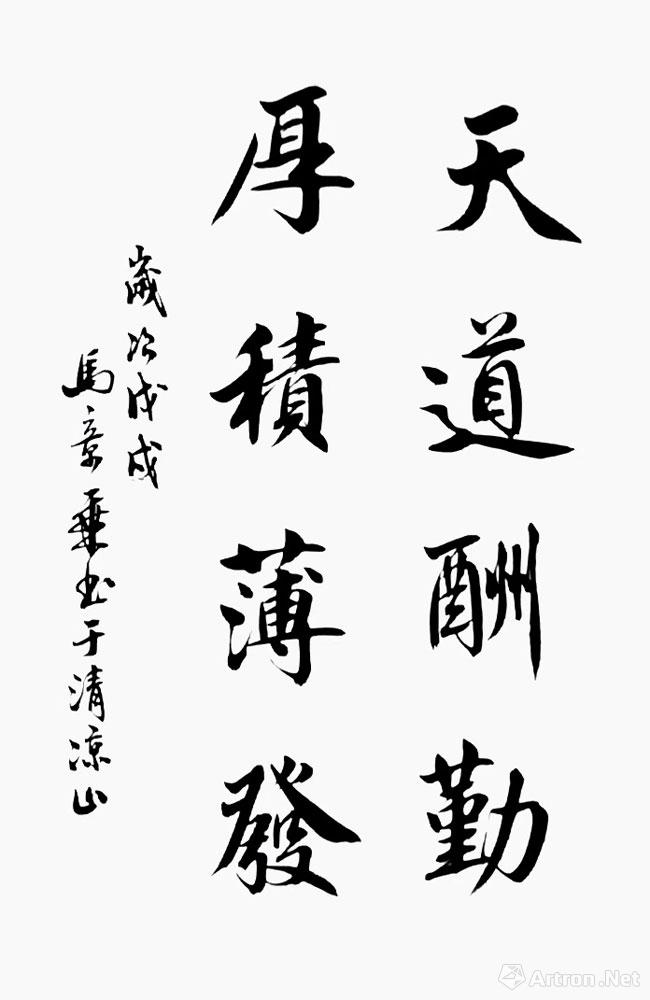 天道酬勤
厚積薄發
歲次戊戌
馬章乘书于清凉山
Artron.Net